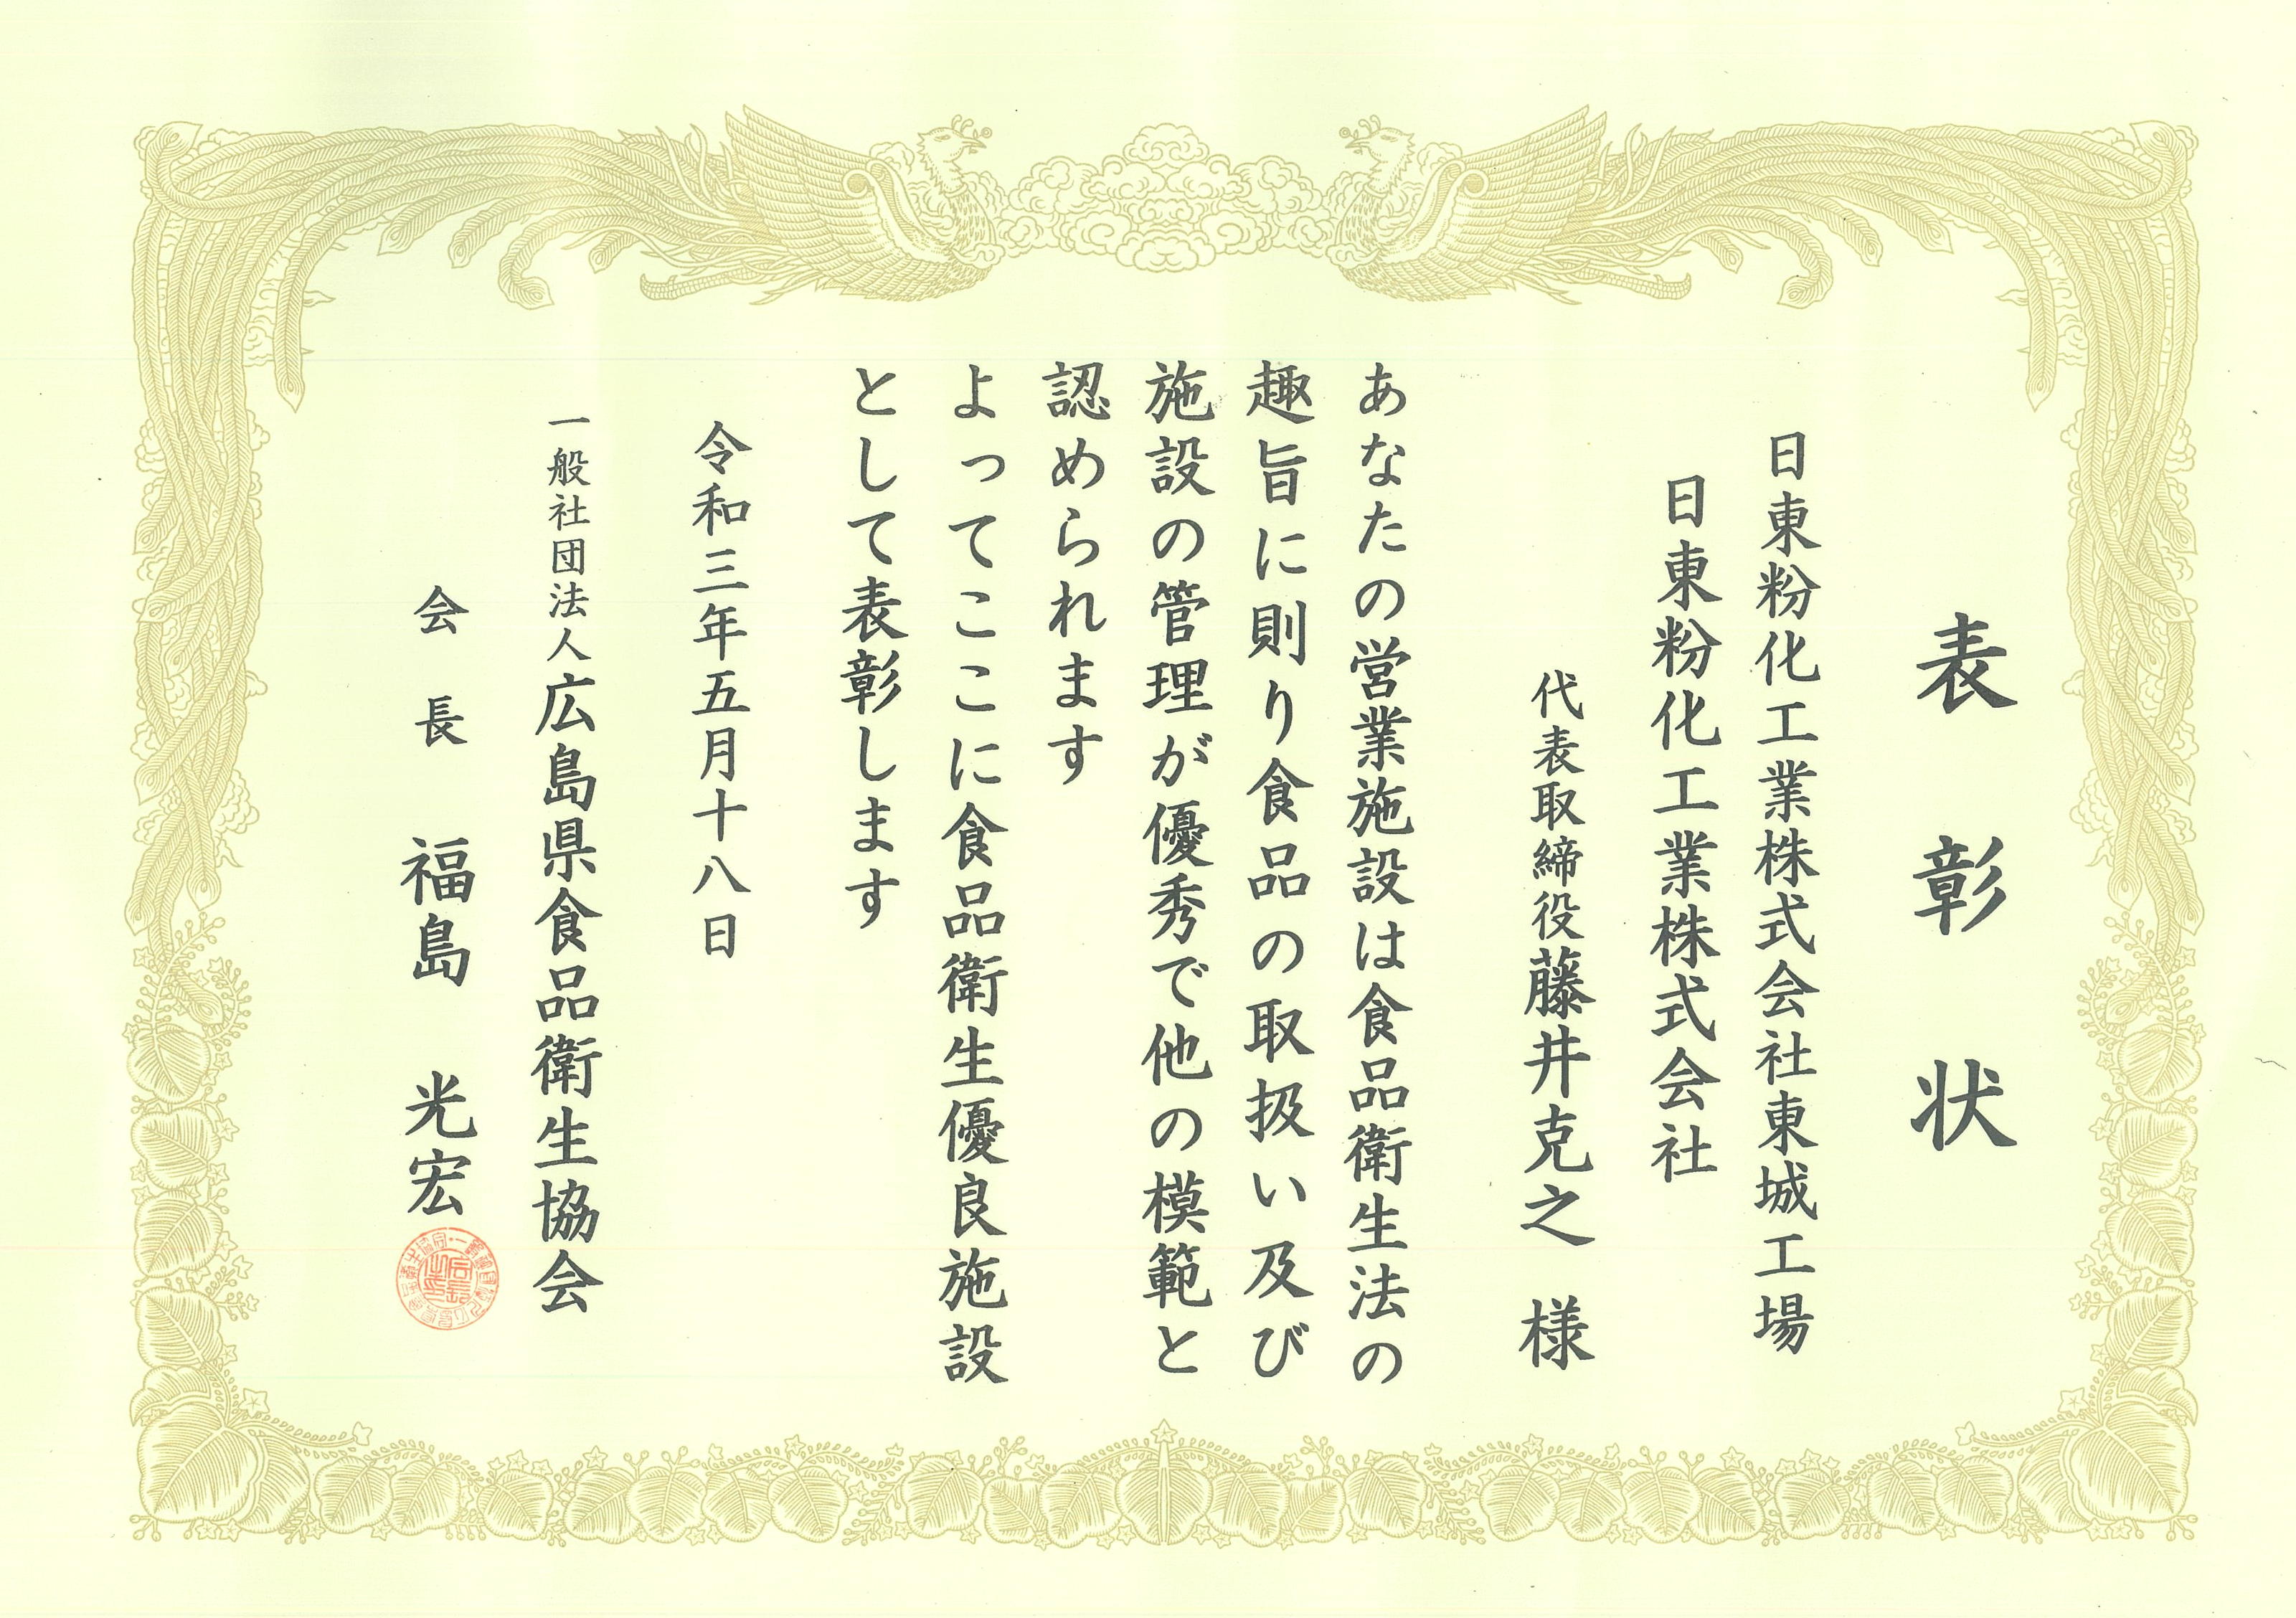 表彰状
日東粉化工業株式会社東城工場
日東粉化工業株式会社
代表取締役藤井克之 様
あなたの営業施設は食品衛生法の
趣旨に則り食品の取扱い及び
施設の管理が優秀で他の模範と
認められます
よってここに食品衛生優良施設
として表彰します
令和三年五月十八日
一般社団法人広島県食品衛生協会
会長 福島 光宏